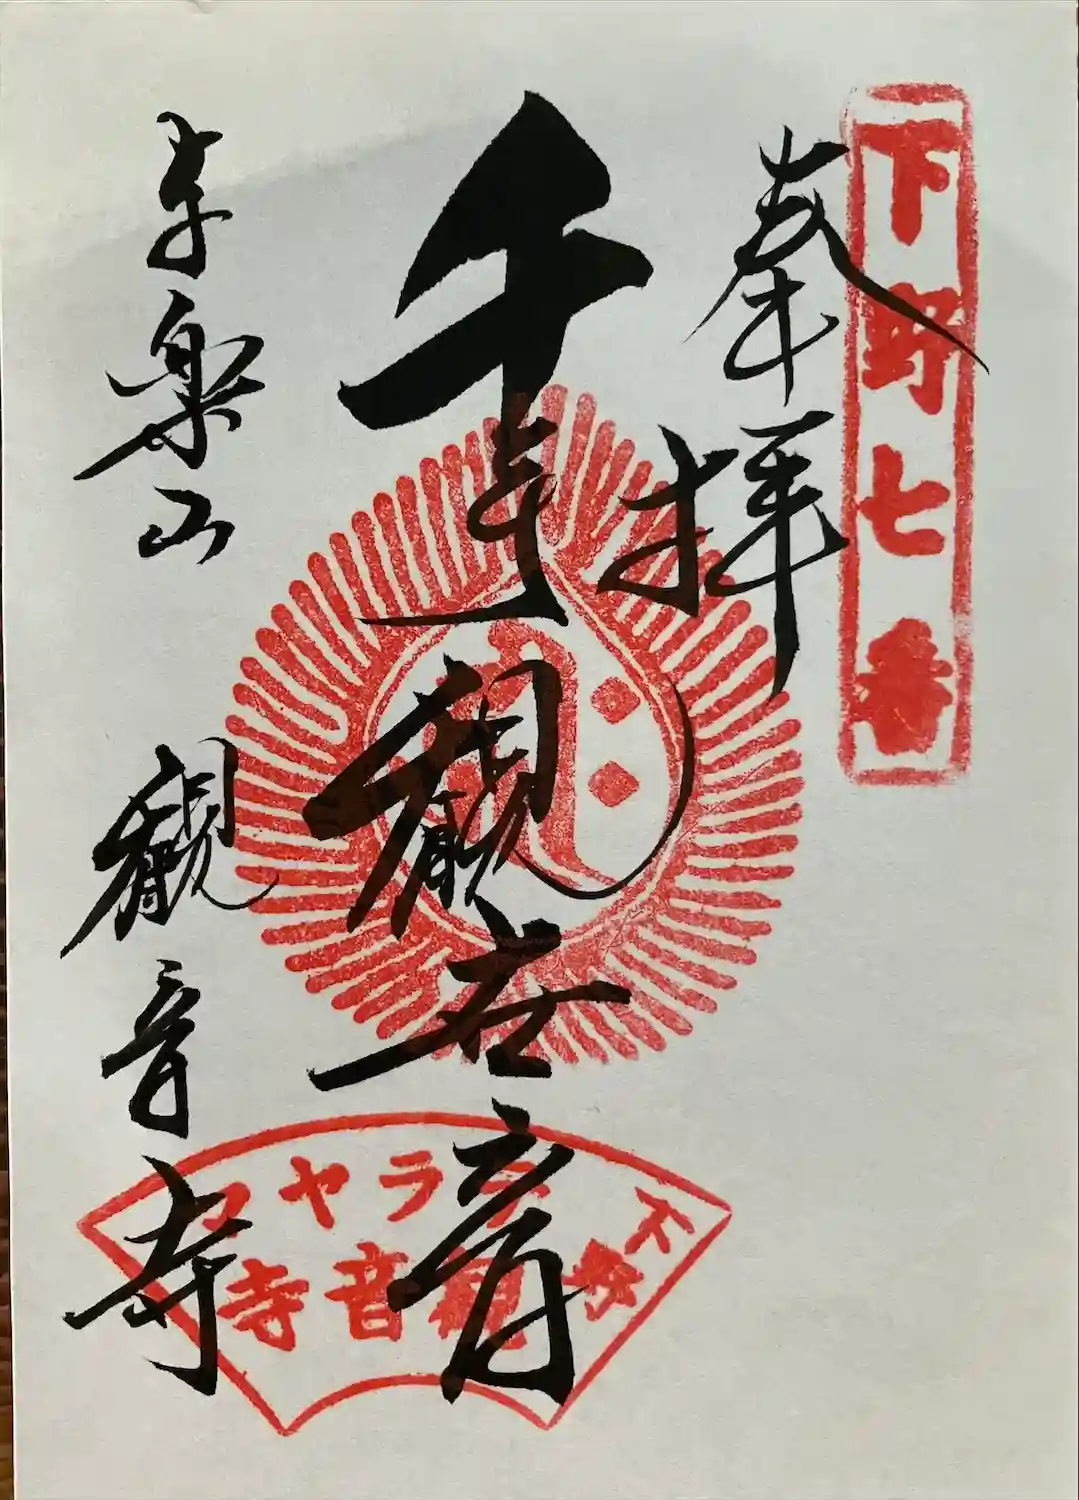 下野七番
奉拝
千手観世音
下野
テラヤマ
観音寺
与楽山
観音寺